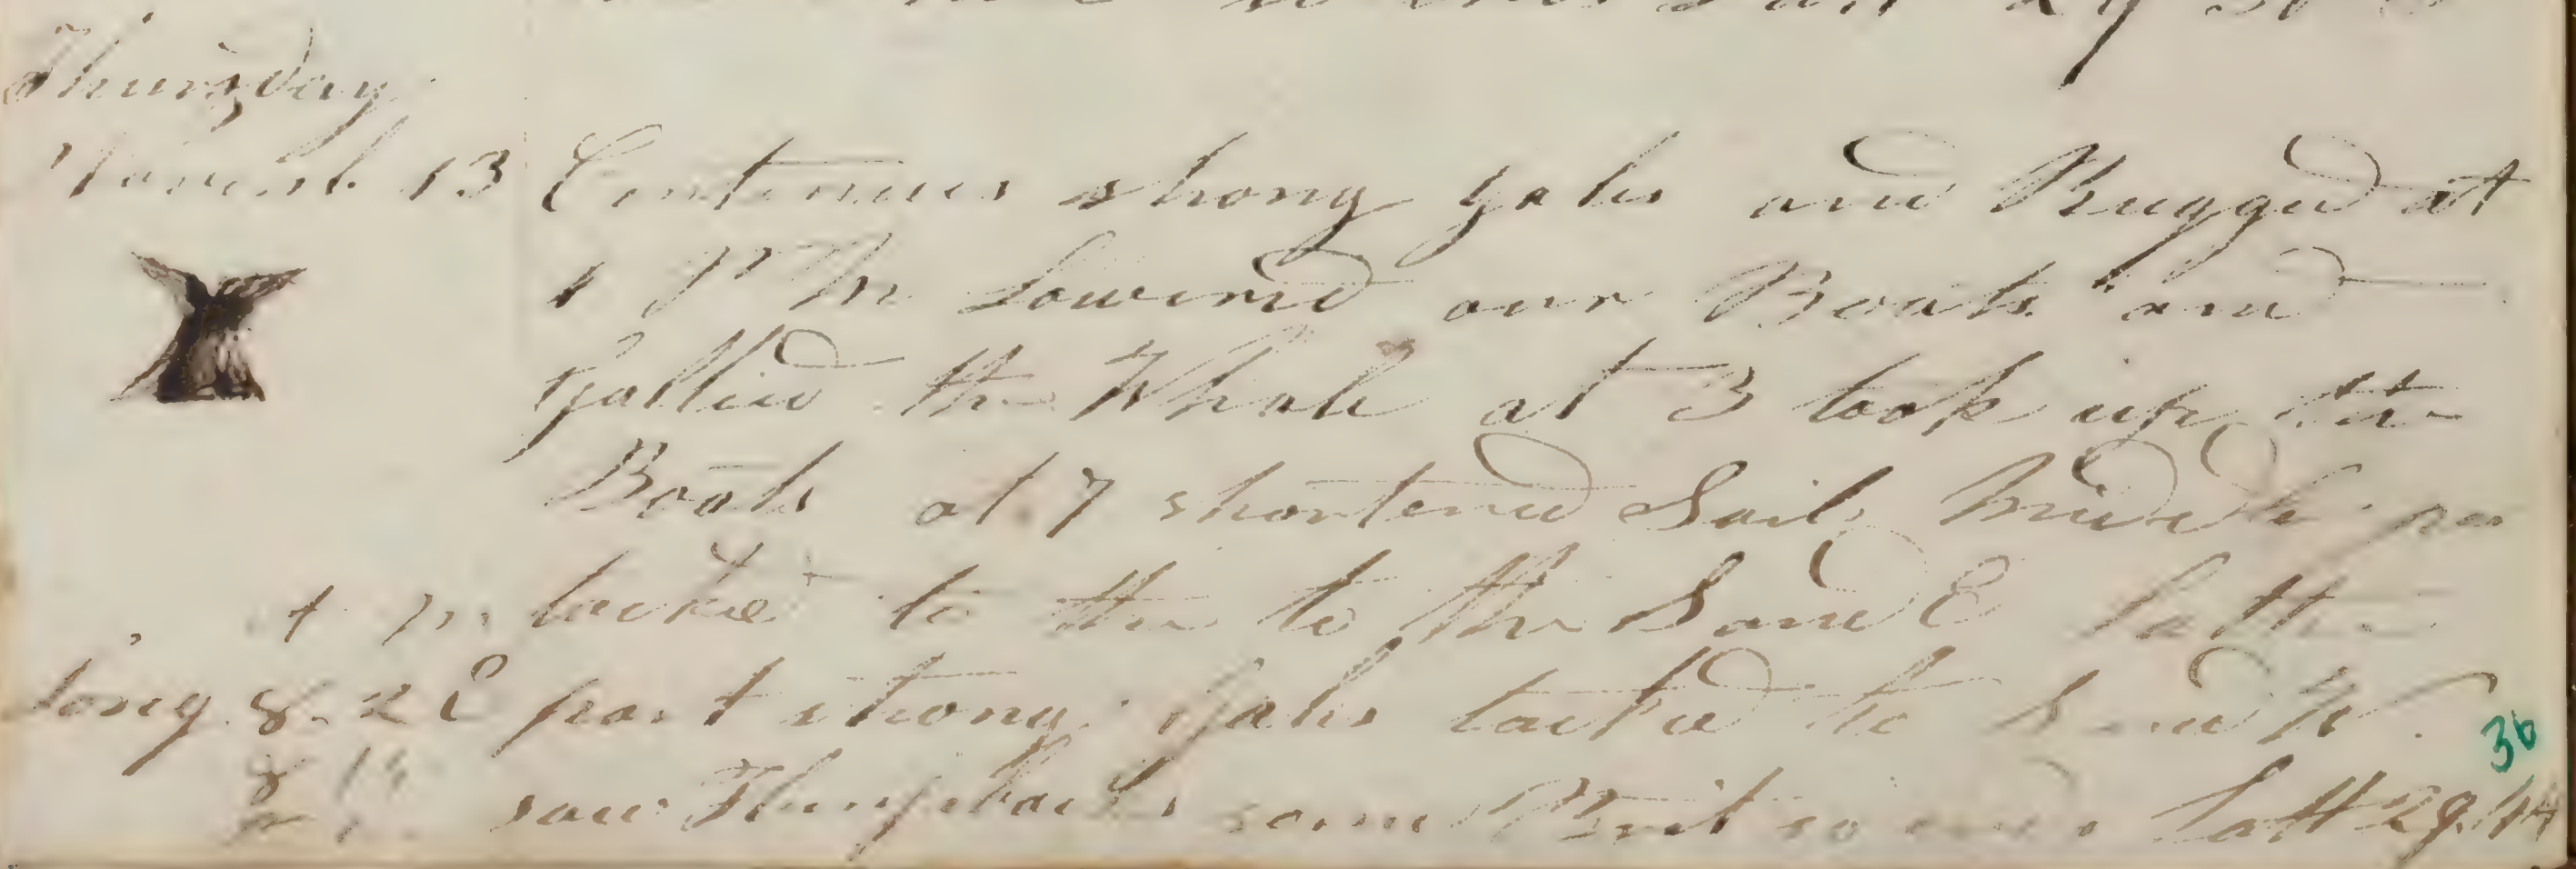 Thursday
Novemb. 13 Continues strong gales and Rugged at
1 P M Lowered our Boats and
Gallied the Whale at 3 took up the
Boats at 7 shortened Sail Middle pa
4 M tacked to the to the S and E Latte
Long 8.2 E part strong gales tacked to S and W
saw Humpbacks some so ends Latt 29.44
36